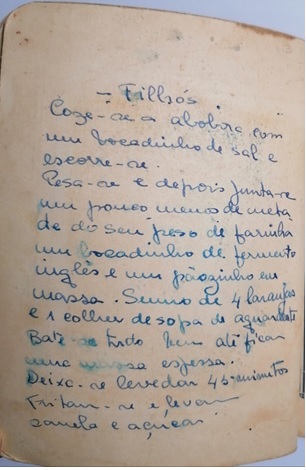 - Filhós
Coze-se a abobora com
um bocadinho de sal e
escorre-se.
Pesa-se e depois junta-se
um pouco menos de meta
de do seu peso de farinha
um bocadinho de fermento
inglês e um pãozinho em
massa. Sumo de 4 laranjas
e 1 colher de sopa de aguardente
Bate-se tudo bem até ficar
uma massa espessa.
Deixa-se levedar 45 minutos
Fritam-se e levam
canela e açúcar